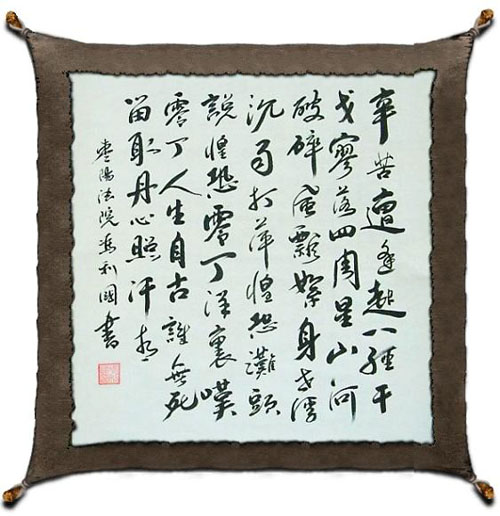 辛苦遭逢起一經干
戈寥落四周星山河
破碎風飄絮身世浮
沉雨打萍惶恐灘頭
說惶恐零丁洋裏嘆
零丁人生自古誰無死
留取丹心照汗青
枣陽法院馮利國書